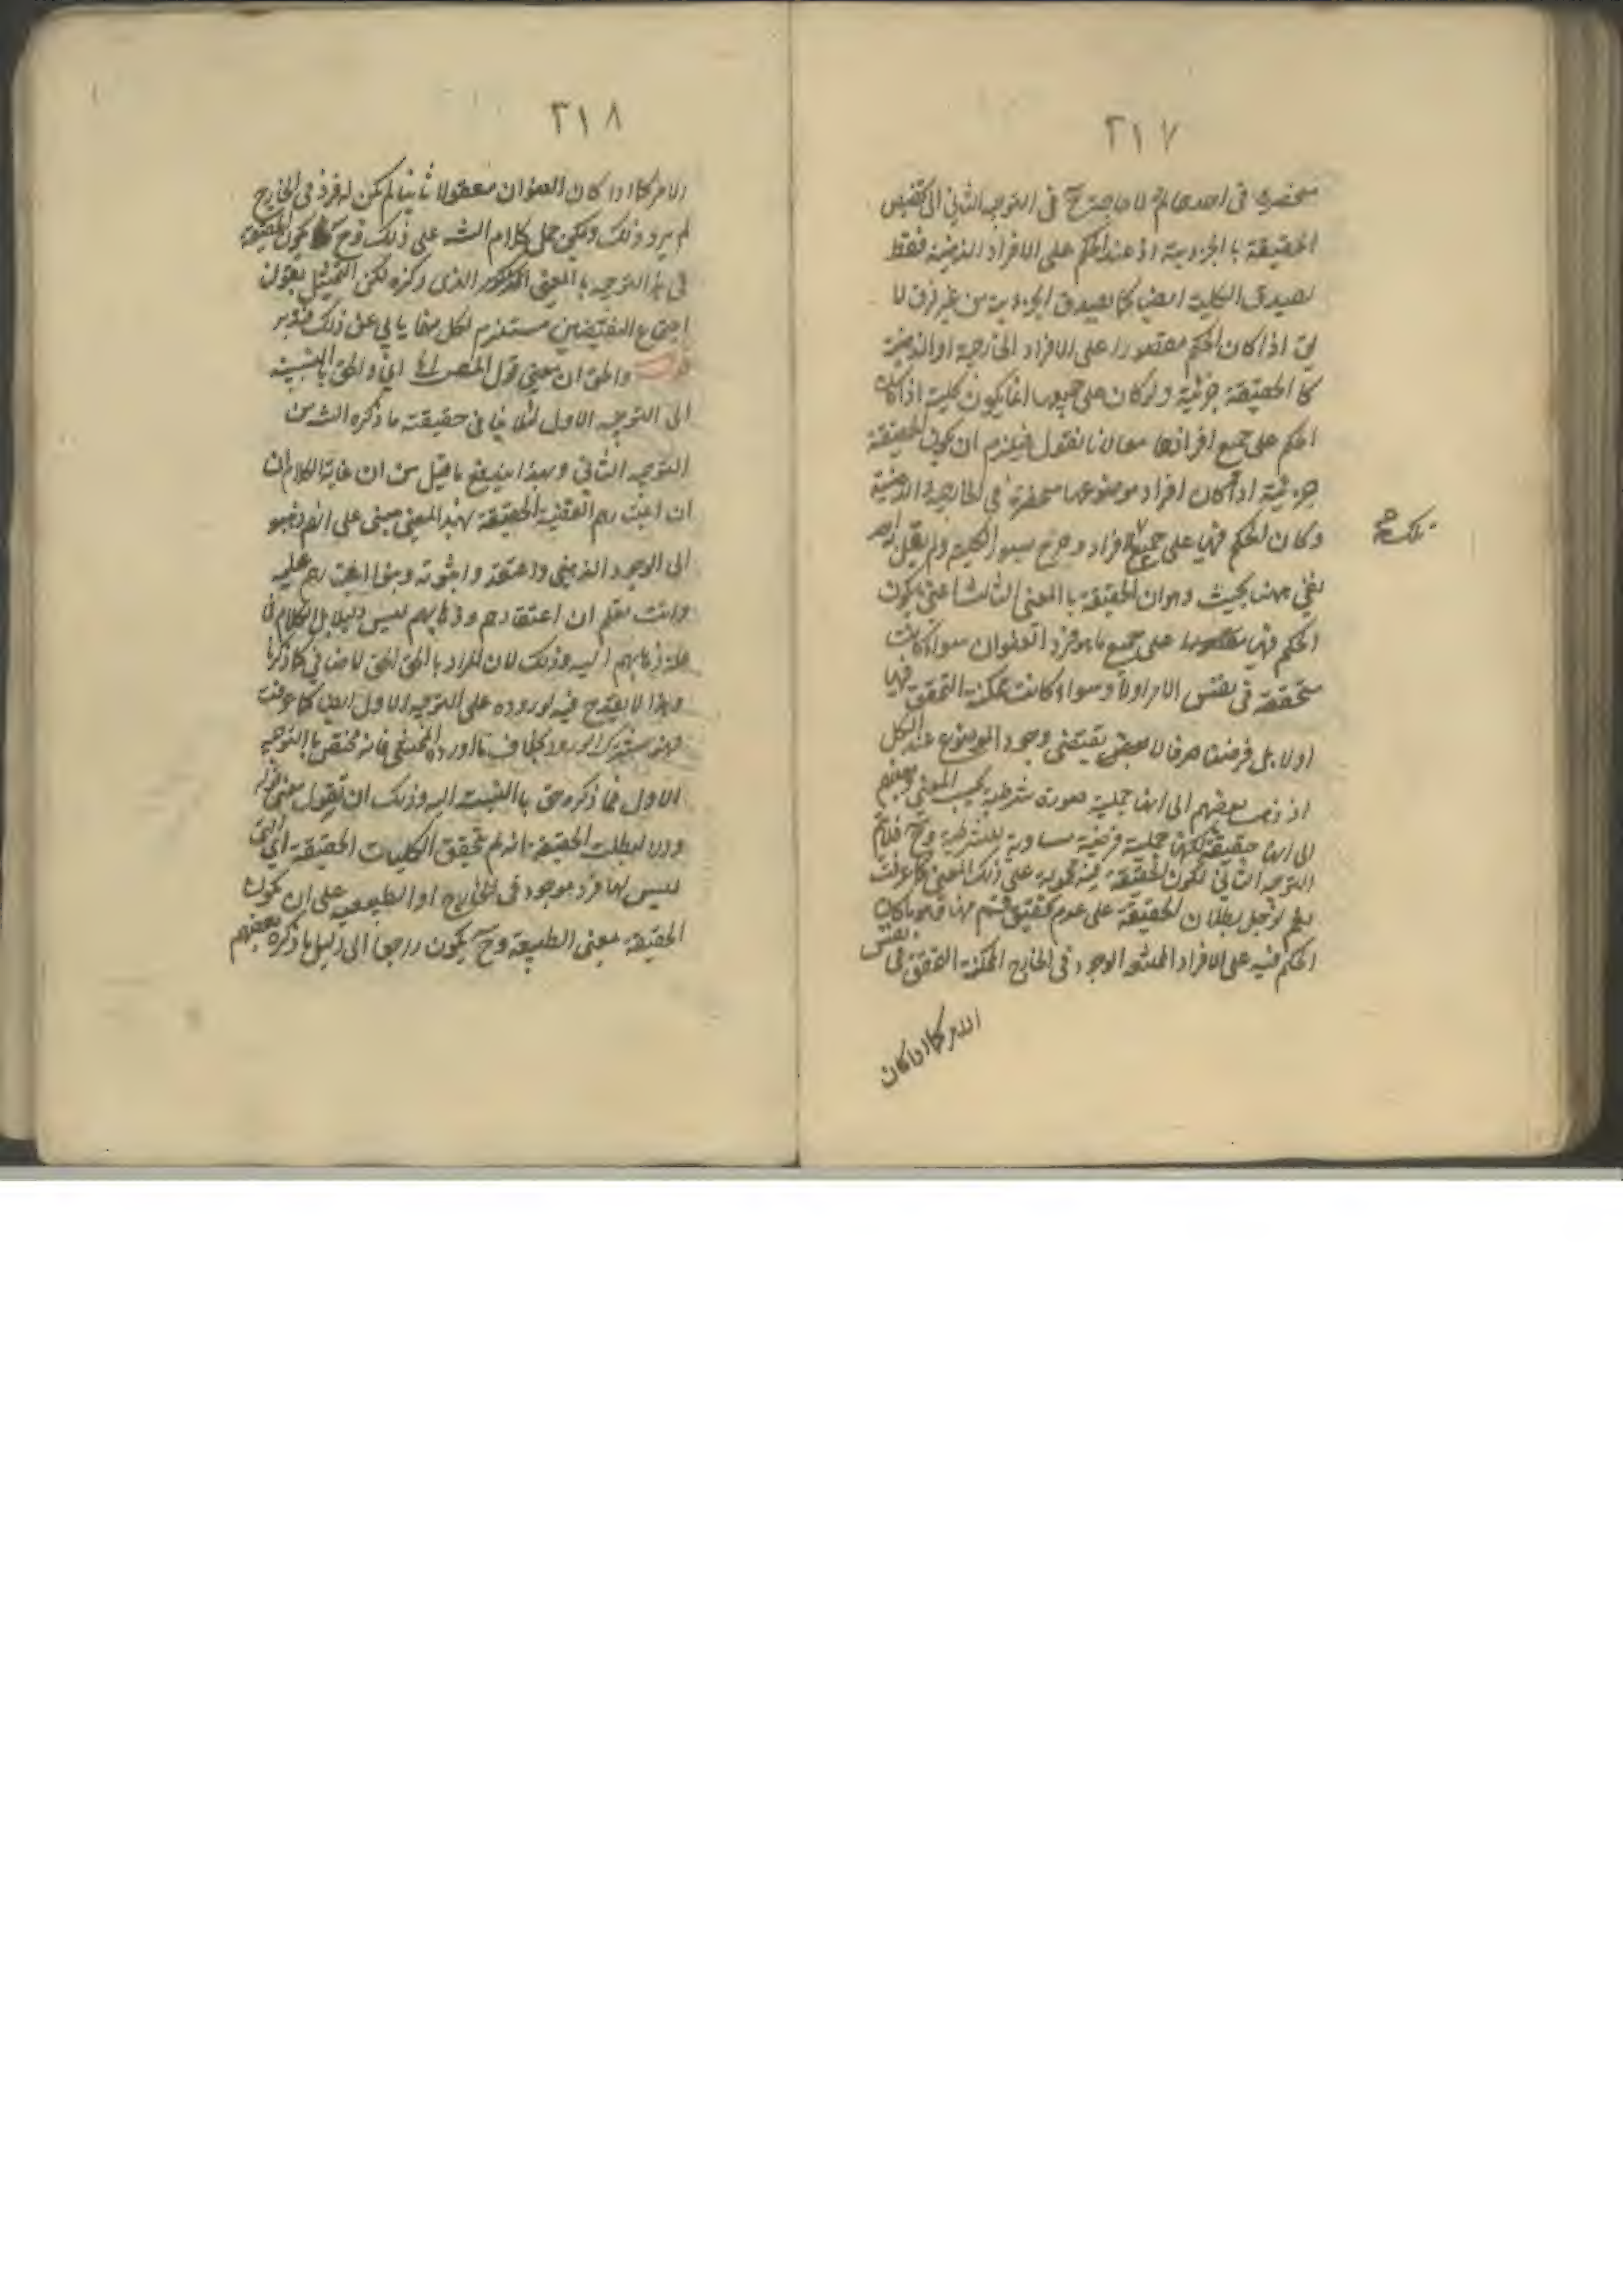 ٣١٧
منحصرة في احدهما ثم لا حاجة ح في التوجيه الثاني الى تخصيص
الحقيقة بالجزوية اذ عند الحكم على الافراد الذهنية فقط
تصدق الكلية ايضا كما تصدق الجزوية من غير فرق لا
يق اذا كان الحكم مقصورا على الافراد الخارجية او الذهنية
كا الحقيقة جزئية ولو كان على جميعها انما يكون كلية اذا كان
الحكم على جميع افرادها معا لانا نقول فيلزم ان يكون الحقيقة
جزئية اذا كان افراد موضوعها منحصرة في الخارجية الذهنية
وكان الحكم فيها على جميع الافراد وصرح بسور الكلية ولم يقل به احد
تلك صح
بقي ههنا بحيث وهو ان الحقيقة با المعنى الثالث اعني يكون
الحكم فيها على جميع ما هو فرد العنوان سواء كانت
متحققة في نفس الامر اولا وسواء كانت ممكنة التحقق فيها
اولا بل فرضا صرفا لا يقتضي وجود الموضوع عند الكل
اذ ذهب بعضهم الى انها حملية صورة شرطية بحسب المعنى وبعضهم
الى انها حقيقة لكنها حملية فرضية مساوية للشرطية وح فلا يتم
التوجيه الثاني لكون الحقيقة فيه محمولة على ذلك المعنى كما عرفت
بطلان الحقيقة على عدم تحقيق قسم منها وهو ما كان
الحكم فيه على الافراد الوجود في الخارج الممكنة التحقق في نفس
الامر كما اذا كان
٣١٨
الامر كما اذا كان العنوان معقولا ثانيا لم يكن له فرد في الخارج
لم يرد ذلك ويمكن حمل كلام الشه على ذلك وح يكون الحقيقة
في هذا التوجيه با المعنى المذكور الذي ذكره لكن التمثيل بقول
اجتماع النقيضين مستلزم لكل منهما يابى عن ذلك فتدبر
والحق ان معنى قول المص الخ اي والحق بالنسبة
الى التوجيه الاول في حقيقة ما ذكره الشه من
التوجيه الثاني وبهذا يندفع ما قيل من ان غاية الكلام ان
ان اثباتهم القضية الحقيقة بهذا المعنى مبني على انهم ذهبوا
الى الوجود الذهني واعتقدوا ثبوته وبنوا اثباتهم عليه
وانت تعلم ان اعتقادهم وذهابهم ليس دليلا بل الكلام في
علة ذهابهم اليه وذلك لان المراد بالحق الحق الاضافي كما ذكرنا
وهذا لا يقدح فيه لوروده على التوجيه الاول ايضا كما عرفت
فهو مشترك الورود بخلاف ما اورده المحشي فانه مختص با التوجيه
الاول فما ذكره حق با النسبة اليه وذلك ان تقول معنى قوله
والا لبطلت الحقيقة انه لم تحقق الكليات الحقيقة اي التي
ليس لها فرد موجود في الخارج او الطبيعية على ان يكون
الحقيقة بمعنى الطبيعة وح يكون راجعا الى دليل ما ذكره بعضهم